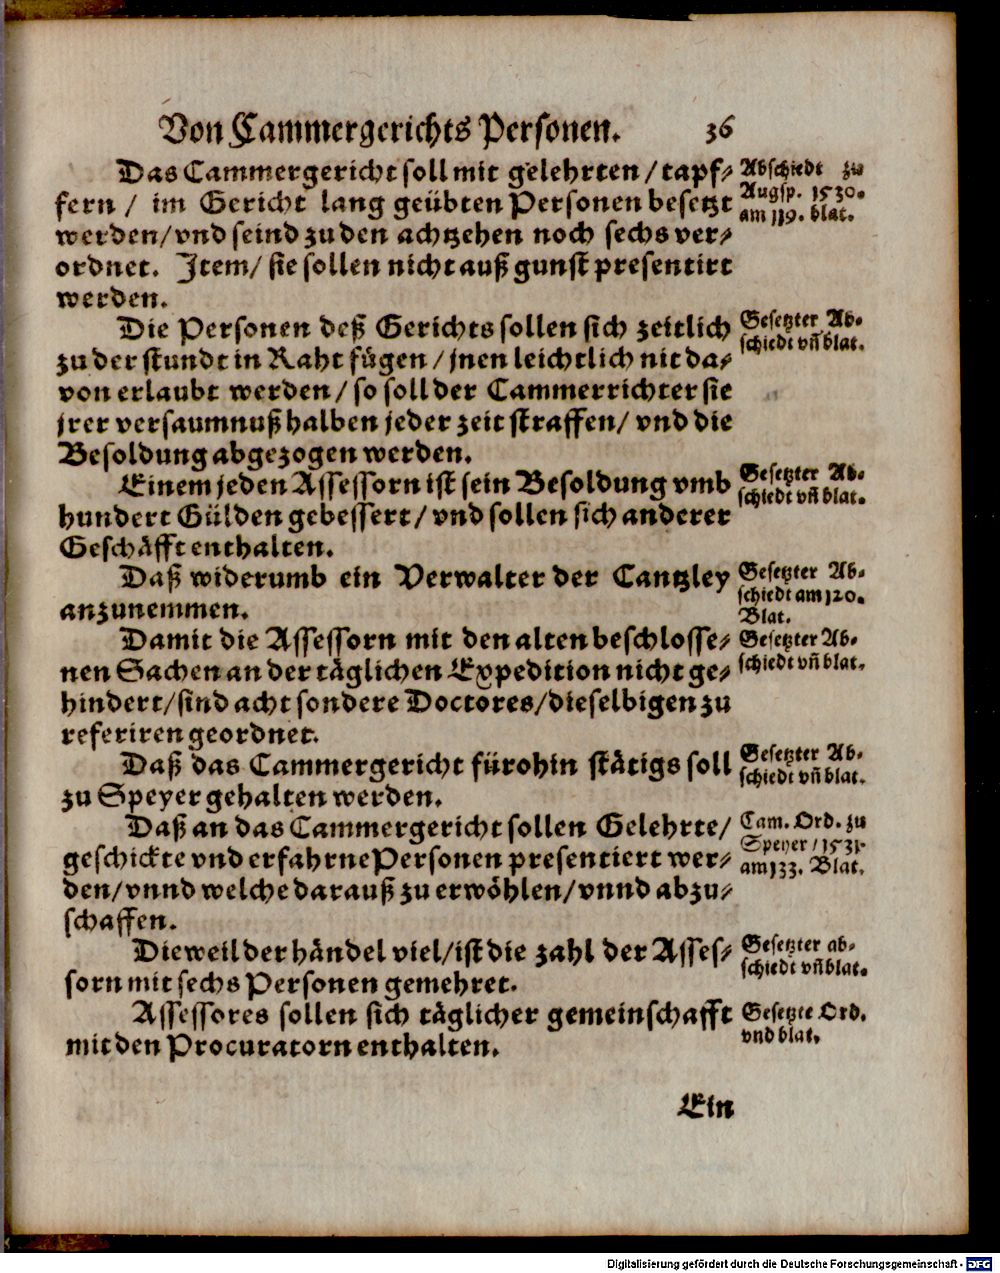 Von Cammergerichts Personen. 36
Das Cammergericht soll mit gelehrten / tapf-
fern / im Gericht lang geübten Personen besetzt
werden / vnd seind zu den achtzehen noch sechs ver-
ordnet. Item / sie sollen nicht auß gunst presentirt
werden.
Abschiedt zu
Augsp. 1530.
am 119. blat.
Die Personen deß Gerichts sollen sich zeitlich
zu der stundt in Raht fügen / jnen leichtlich nit da-
von erlaubt werden / so soll der Cammerrichter sie
jrer versaumnuß halben jeder zeit straffen / vnd die
Besoldung abgezogen werden.
Gesetzter Ab-
schiedt vñ blat.
Einem jeden Assessorn ist sein Besoldung vmb
hundert Gülden gebessert / vnd sollen sich anderer
Geschäfft enthalten.
Gesetzter Ab-
schiedt vñ blat.
Daß widerumb ein Verwalter der Cantzley
anzunemmen.
Gesetzter Ab-
schiedt am 120.
Blat.
Damit die Assessorn mit den alten beschlosse-
nen Sachen an der täglichen Expedition nicht ge-
hindert / sind acht sondere Doctores / dieselbigen zu
referiren geordnet.
Gesetzter Ab-
schiedt vñ blat.
Daß das Cammergericht fürohin stätigs soll
zu Speyer gehalten werden.
Gesetzter Ab-
schiedt vñ blat.
Daß an das Cammergericht sollen Gelehrte /
geschickte vnd erfahrne Personen presentiert wer-
den / vnnd welche darauß zu erwöhlen / vnnd abzu-
schaffen.
Cam. Ord. zu
Speyer / 1531.
am 133. Blat.
Dieweil der händel viel / ist die zahl der Asses-
sorn mit sechs Personen gemehret.
Gesetzter ab-
schiedt vñ blat.
Assessores sollen sich täglicher gemeinschafft
mit den Procuratorn enthalten.
Gesetzte Ord.
vnd blat.
Ein
Digitalisierung gefördert durch die Deutsche Forschungsgemeinschaft - DFG